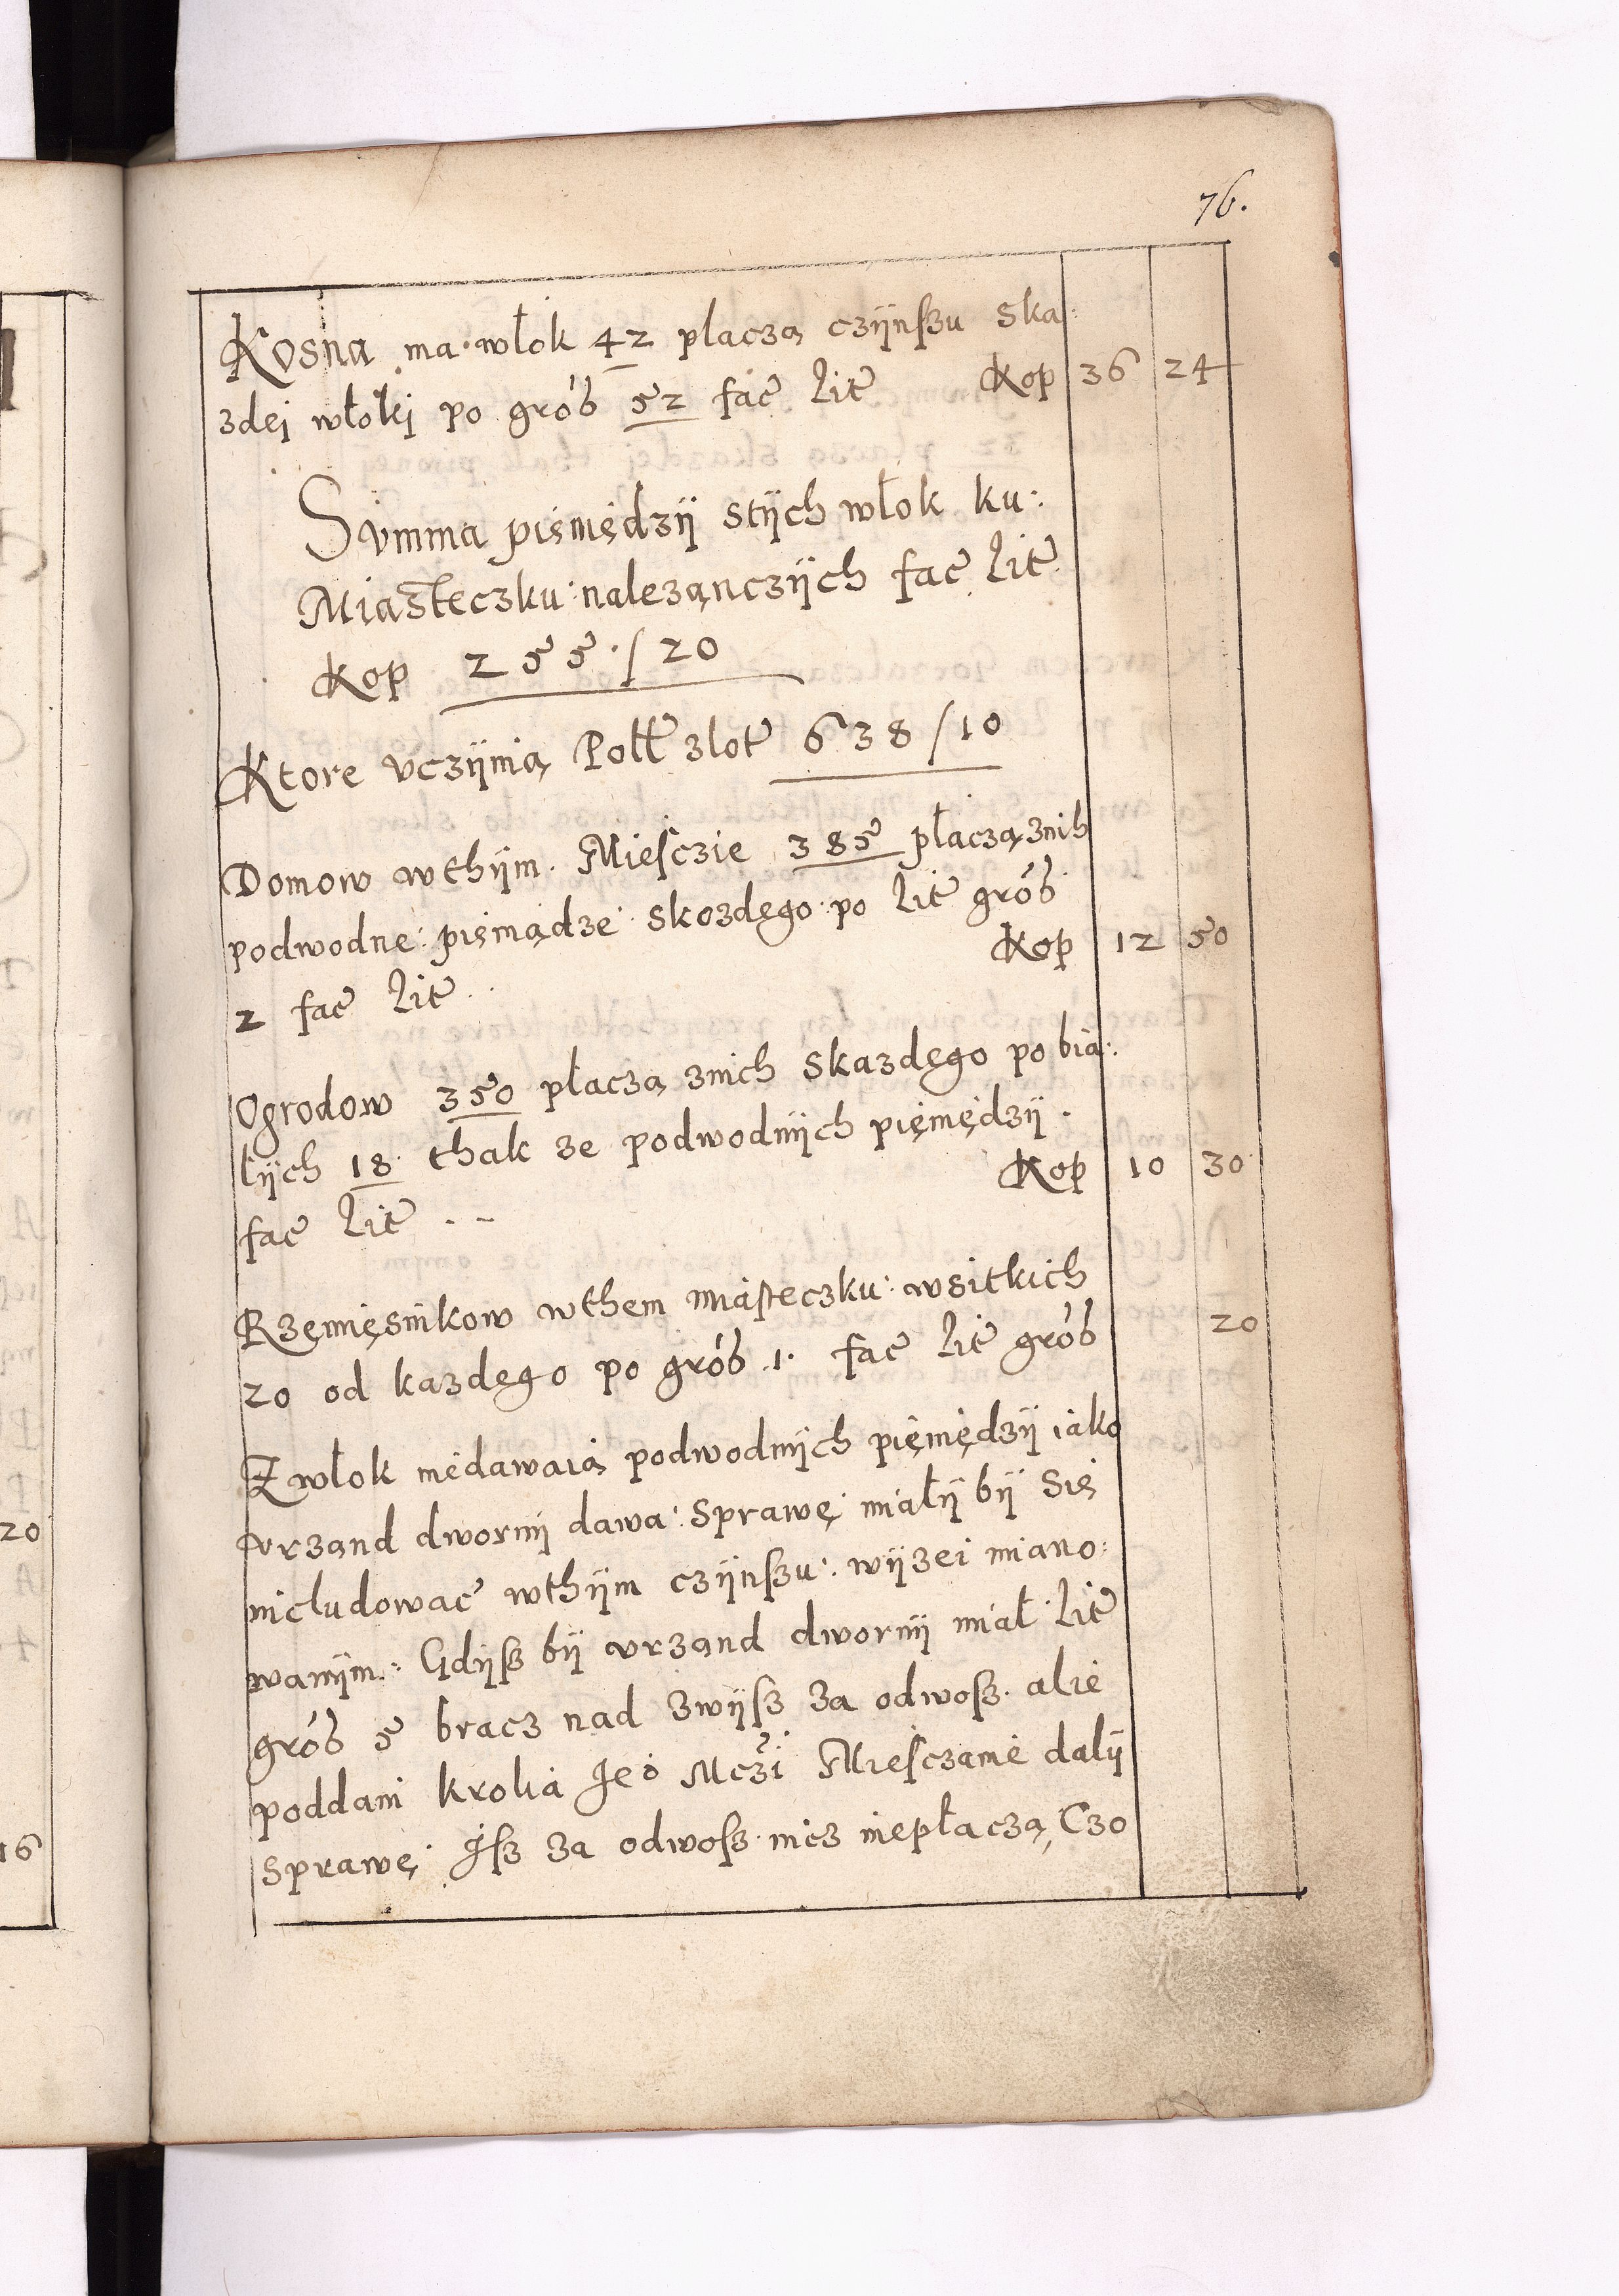 76.
Kosna ma włok 42 placzą czÿnszu ska:
zdej włokj po grób 52 fac̃ lit̃ Kop 36 24
Summa pięniędzÿ stÿch włok ku:
Miasteczku nalezącnzÿch fac̃ lit̃
Kop 255 / 20
Ktore vczÿnią Poll̃ zlot̃ 638 / 10
Domow wthÿm Miesczie 385 płaczą znih
podwodne pięniądze skozdego po lit̃ grób
2 fac̃ lit̃ Kop 12 50
Ogrodow 350 płaczą znich skazdego po bia:
łÿch 18 thak ze podwodnÿch pięniędzÿ
fac̃ lit̃ Kop 10 30
Rzęmięsnikow wthem miasteczku wsitkich
20 od kazdego po grób 1. fac̃ lit̃ grób 20
Z włok niedawaią podwodnÿch pięnędzÿ iako
vrzand dwornÿ dawa sprawę miałÿ bÿ się
nicludowac wthÿm czÿnszu wÿzei miano:
wanÿm. Gdÿsz bÿ vrzand dwornÿ miał lit̃
grób 5 bracz nad zwÿsz za odwosz alie
poddani krolia Jeo Mczi Miesczanie dalÿ
sprawę Jsz za odwosz nicz niepłaczą, Czo
20
16